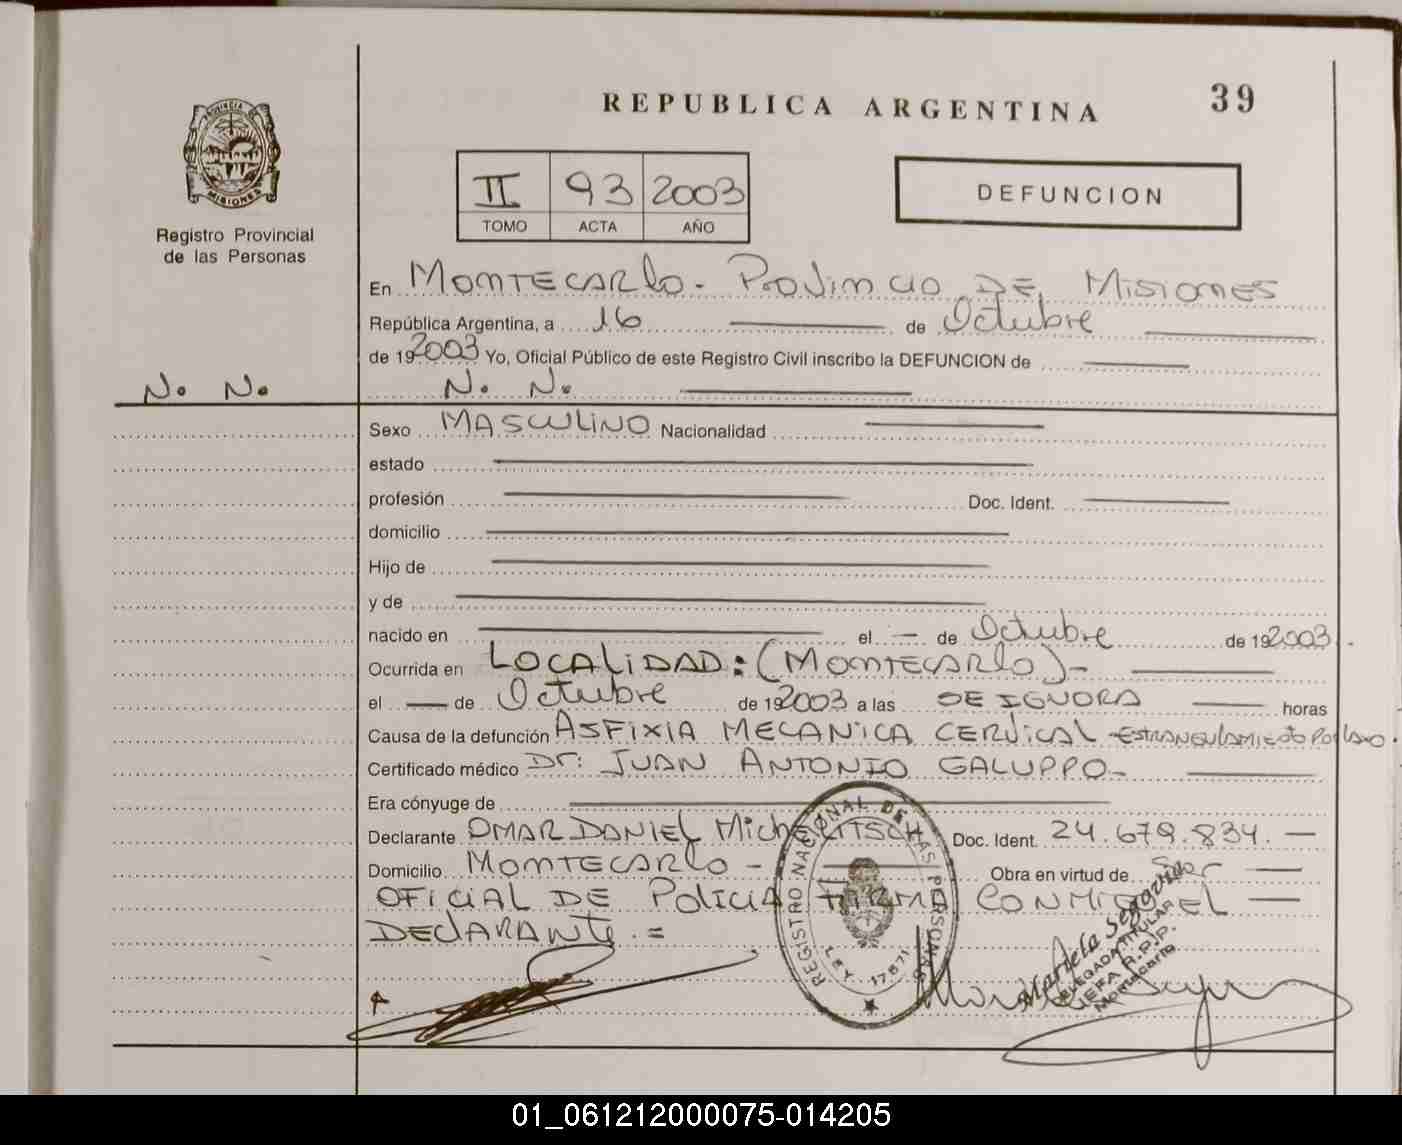 REPUBLICA ARGENTINA
39
PROVINCIA DE
MISIONES
Registro Provincial
de las Personas
II 93 2003
TOMO ACTA AÑO
DEFUNCION
En MONTECARLO. PROVINCIA DE MISIONES
República Argentina, a 16 de Octubre
de 192003 Yo, Oficial Público de este Registro Civil inscribo la DEFUNCION de
N. N.
N. N.
Sexo MASCULINO Nacionalidad
estado
profesión Doc. Ident.
domicilio
Hijo de
y de
nacido en el — de Octubre de 192003.
Ocurrida en LOCALIDAD: (MONTECARLO)-
el — de Octubre de 192003 a las SE IGNORA horas
Causa de la defunción ASFIXIA MECANICA CERVICAL - ESTRANGULAMIENTO POR LAZO.
Certificado médico Dr: JUAN ANTONIO GALUPPO-
Era cónyuge de
Declarante OMAR DANIEL Doc. Ident. 24.679.834. —
Domicilio MONTECARLO - Obra en virtud de Ser
OFICIAL DE POLICIA FIRMA CONMIGO EL —
DECLARANTE. =
REGISTRO NACIONAL DE LAS PERSONAS
LEY 17671
DELEGADA TITULAR
JEFA R.P.P.
Montecarlo
01_061212000075-014205